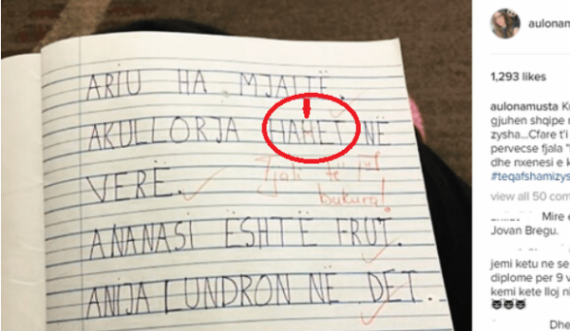 ARIU HA MJALTË.
AKULLORJA HAHET NË
VERË.
Fjali të
bukura!
ANANASI ËSHTË FRUT.
ANIJA LUNDRON NË DET.
aulonam
1,293 likes
aulonamusta
gjuhen shqipe
zysha...Cfare t'i
pervecse fjala
dhe nxenesi e k
#teqafshamizys
view all 50 com
Mire e
Jovan Bregu.
jemi ketu ne se
diplome per 9 v
kemi kete lloj ni
Dhe